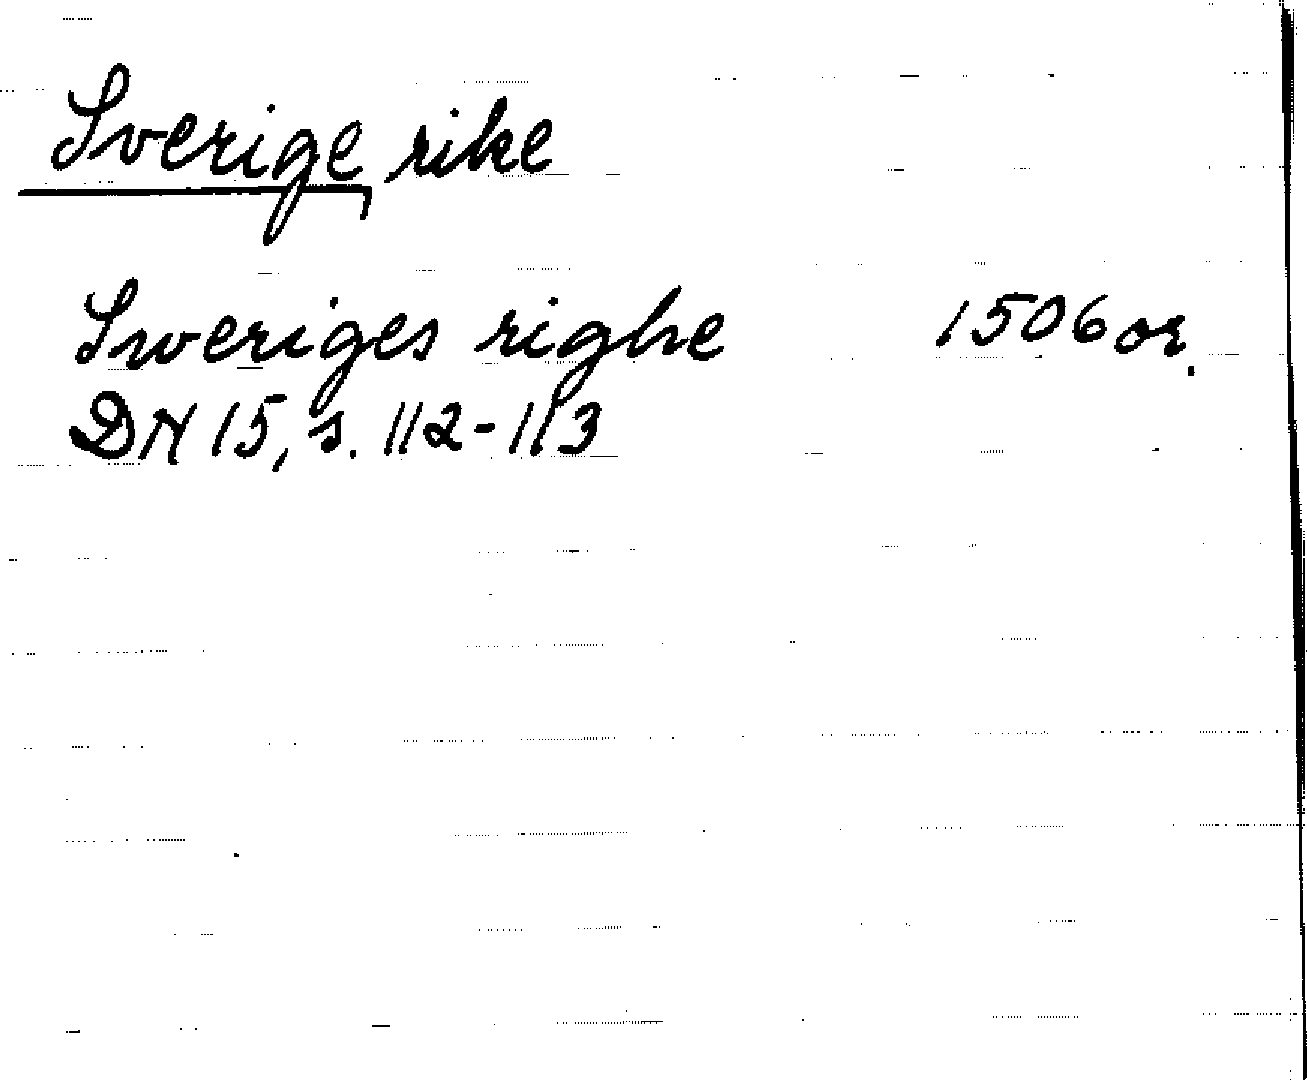 Sverige rike
Sweriges righe 1506 or.
DN 15, s. 112-113